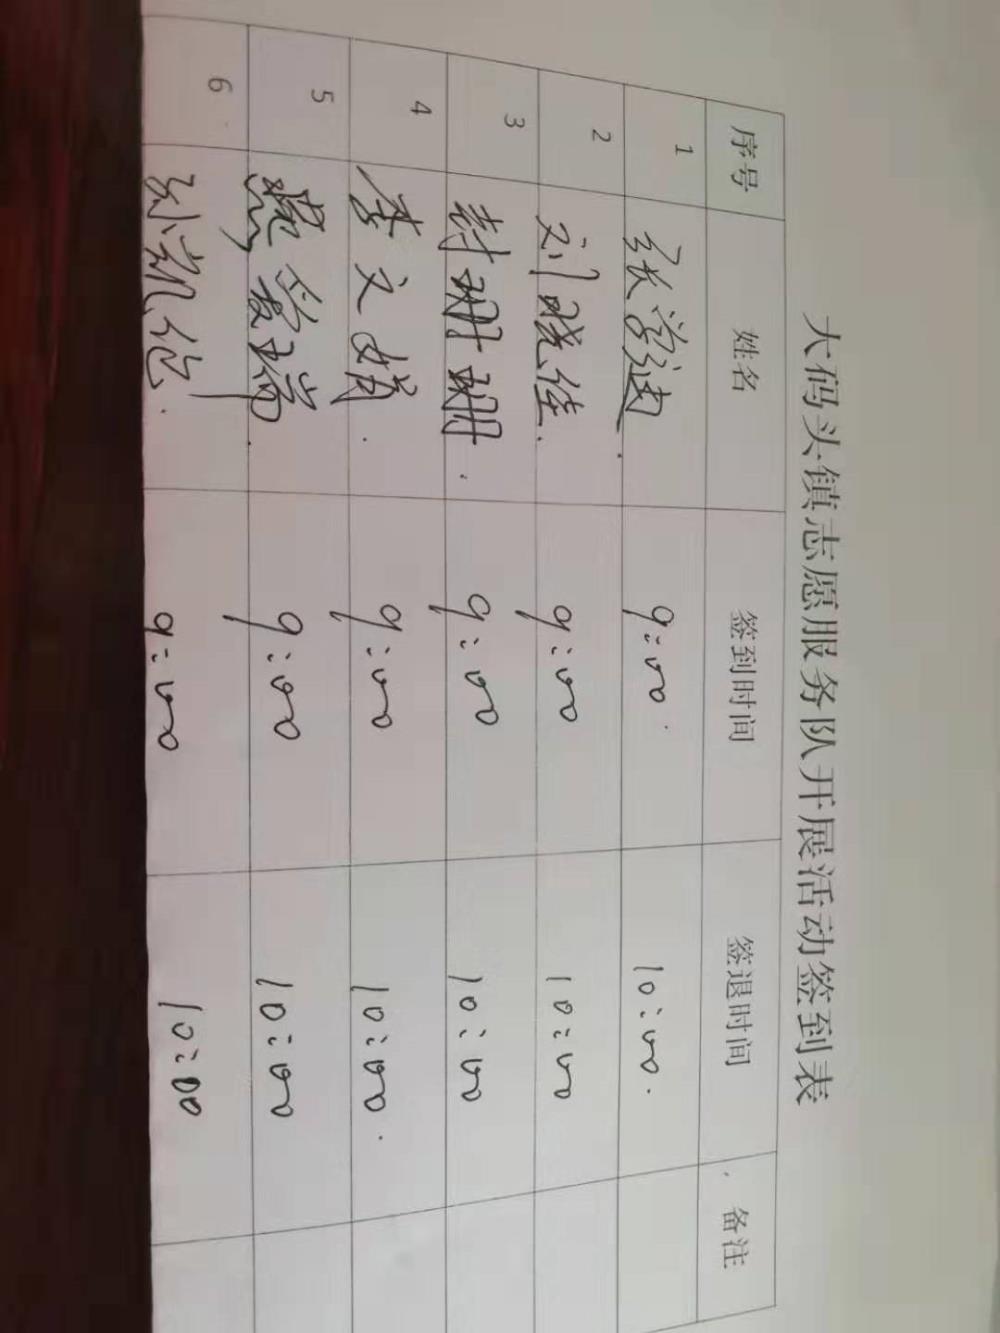 大码头镇志愿服务队开展活动签到表
序号 姓名 签到时间 签退时间 备注
1 张学迪 9:00 10:00
2 刘晓佳 9:00 10:00
3 封珊珊 9:00 10:00
4 李文娟 9:00 10:00
5 9:00 10:00
6 孙凯 9:00 10:00